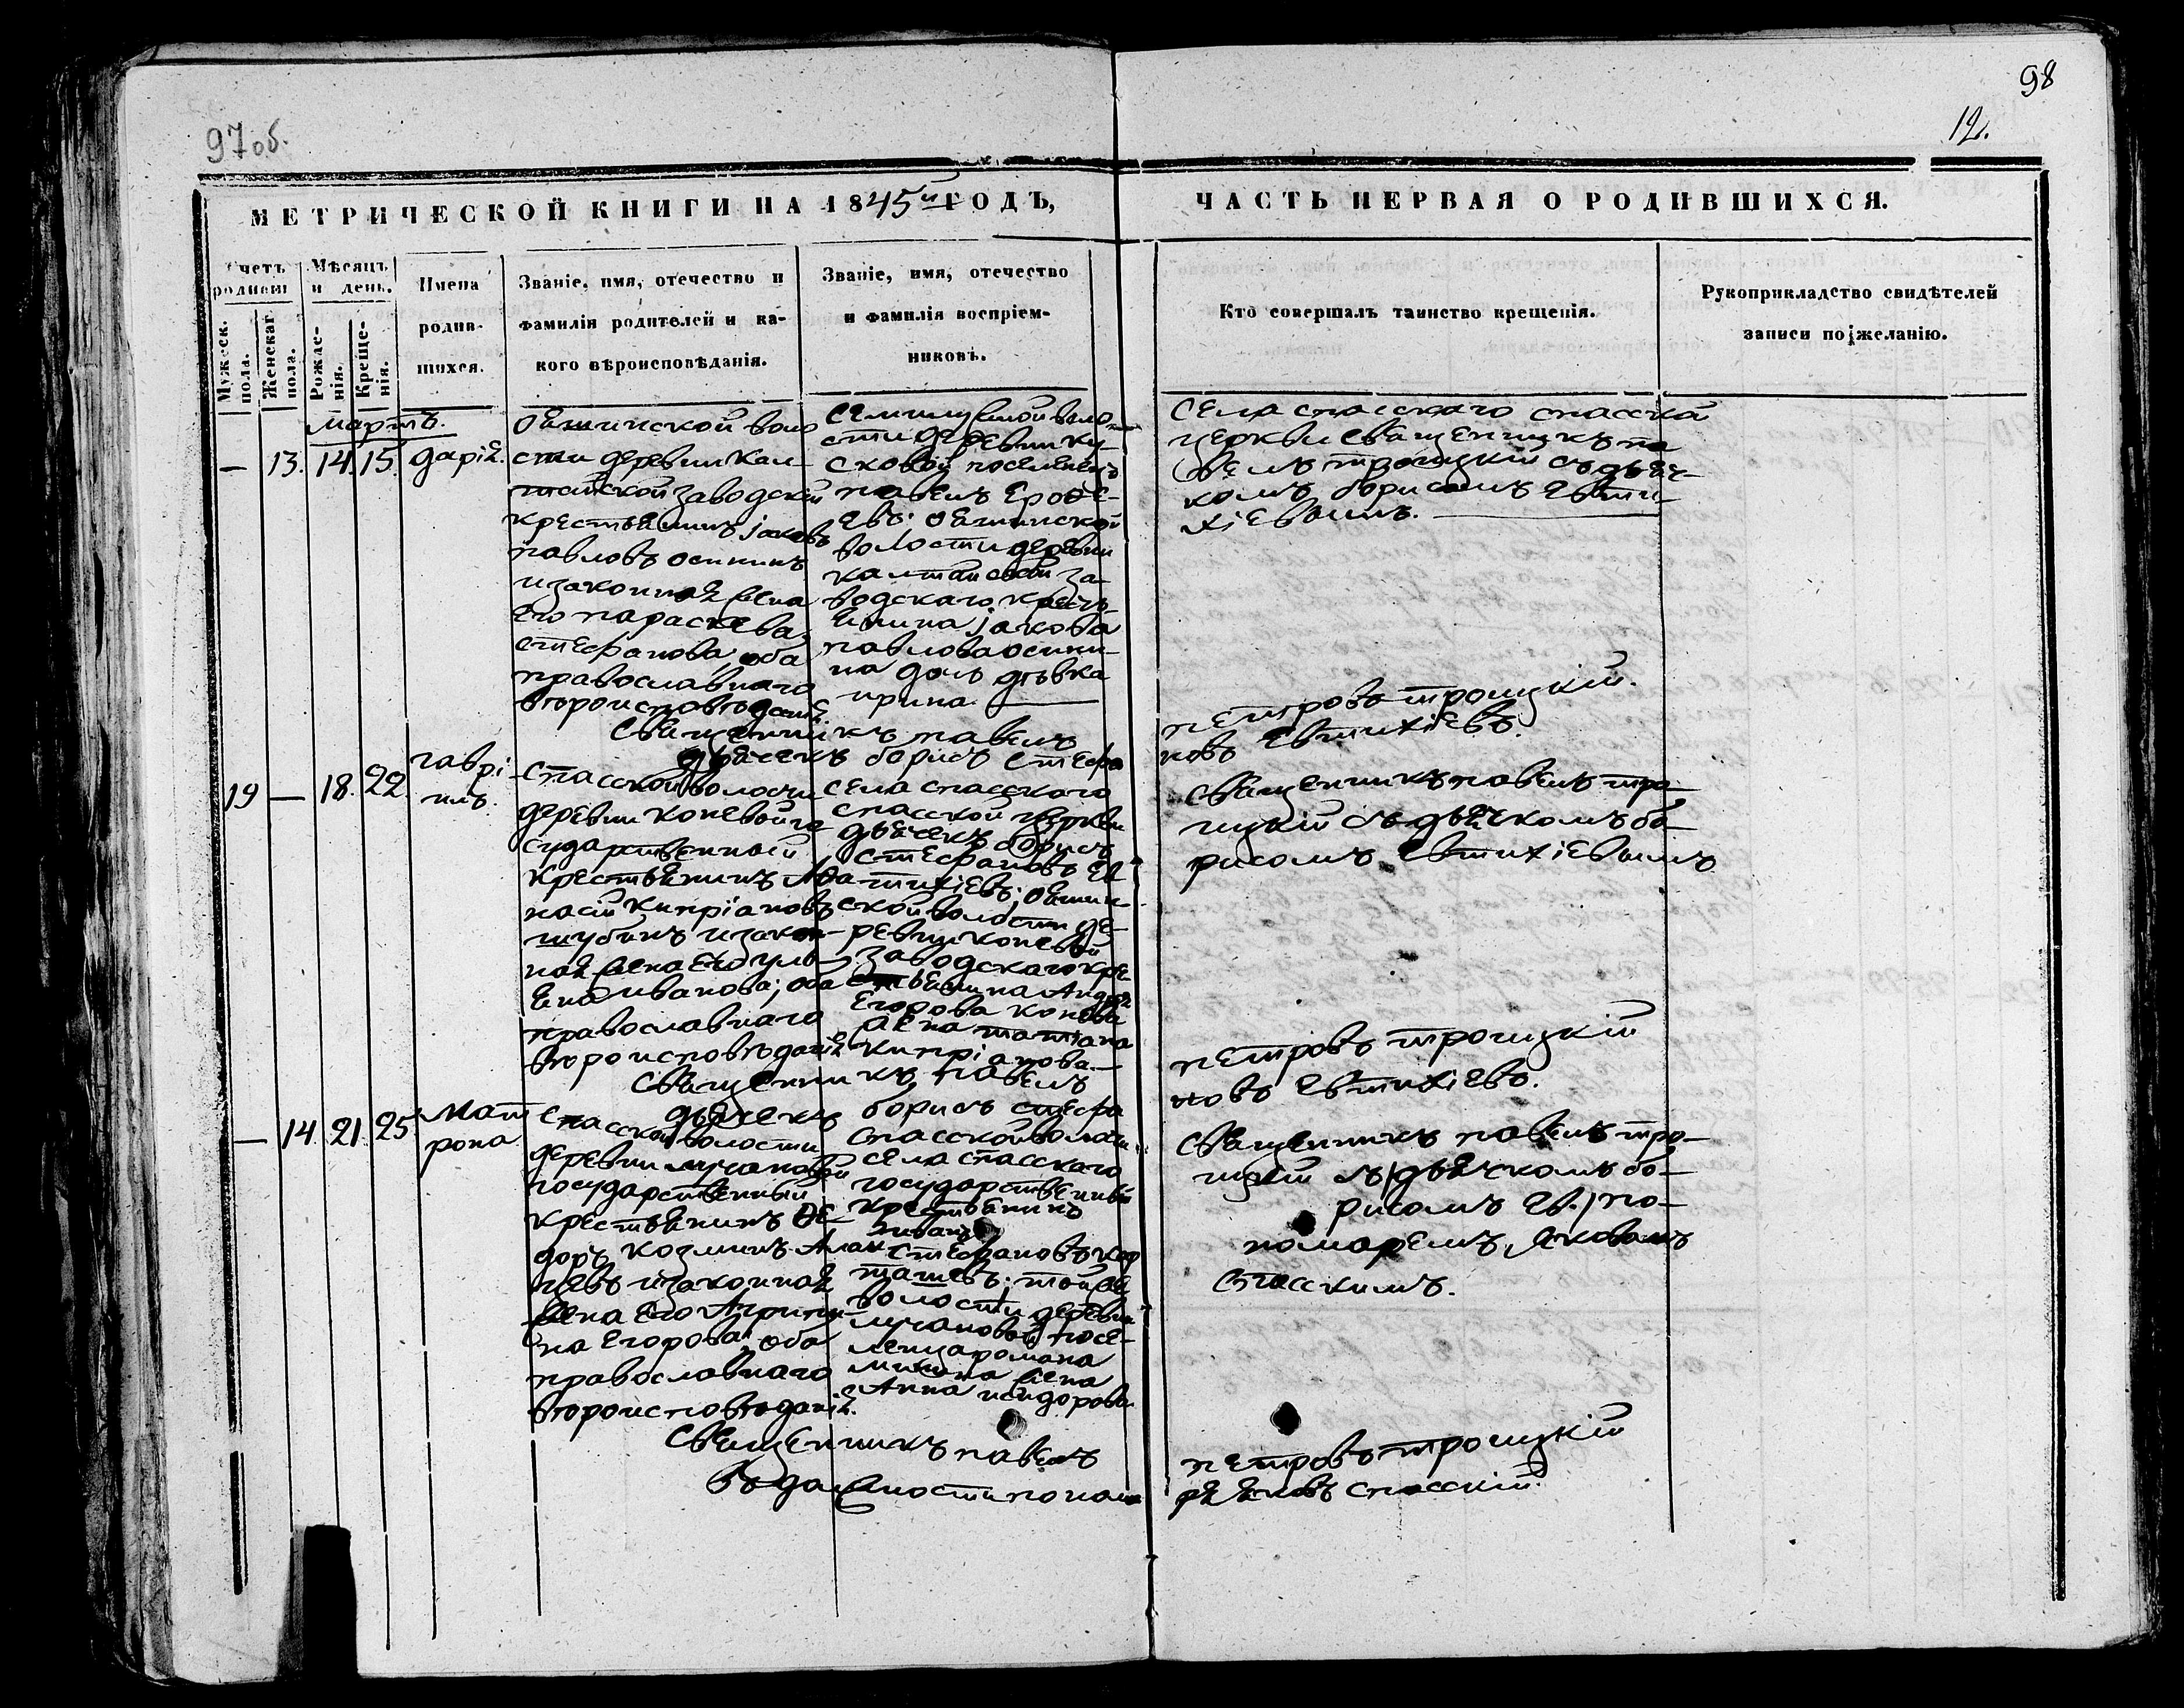 97 об.
98
12.
МЕТРИЧЕСКОЙ КНИГИ НА 1845й ГОДЪ,
ЧАСТЬ ПЕРВАЯ О РОДИВШИХСЯ.
Счетъ родивш
Мужеск. пола.
Женскаг пола.
Мѣсяцъ и день.
Рожде-
нія.
Креще-
нія.
Имена
родив-
шихся.
Званіе, имя, отечество и
фамилія родителей и ка-
кого вѣроисповѣданія.
Званіе, имя, отечество
и фамилія воспріем-
никовъ.
Кто совершалъ таинство крещенія.
Рукоприкладство свидѣтелей
записи по желанію.
мартъ.
— 13. 14. 15. дарія.
Ояшинской воло
сти деревни Кал-
тайской заводскій
крестьянинъ јаковъ
павловъ осининъ
изаконная жена
Его параскева
стефанова, оба
православнаго
вѣроисповѣданія.
семилужной воло
сти деревни ку-
сковой поселенецъ
павелъ Ерофе-
евъ. Ояшинской
волости деревни
калтайской за-
водскаго кресть-
янина јакова
павлова осини-
на дочь дѣвка
ирина.
села спасскаго спасской
церкви священникъ па
велъ троицкій съ дьяч-
комъ борисомъ Евти-
хіевымъ.
священникъ павелъ петровъ троицкій.
дьячекъ борисъ стефановъ Евтихіевъ.
19 — 18. 22. гаврі
илъ.
спасской волости
деревни коневой го
сударственный
крестьянинъ Афа
насій кипріановъ
шубинъ и закон-
ная жена Его улі
яна иванова; оба
православнаго
вѣроисповѣданія
села спасскаго
спасской церкви
дьячекъ борисъ
стефановъ Ев
тихіевъ; Ояшин
ской волости де-
ревни коневой
заводскаго кре-
стьянина Андрея
Егорова конева
жена татіана
кипріанова.
священникъ павелъ тро-
ицкій съ дьячкомъ бо-
рисомъ Евтихіевымъ
священникъ павелъ петровъ троицкій
дьячекъ борисъ стефановъ Евтихіевъ.
— 14. 21. 25 мат
рона
спасской волости
деревни лучановой
государственный
крестьянинъ Фе-
доръ козминъ
цевъ изаконная
жена Его Агрипи-
на Егорова, оба
православнаго
вѣроисповѣданія.
спасской волости
села спасскаго
государственный
крестьянинъ
иванъ
стефановъ кар
ташевъ; той же
волости деревни
лучановой посе-
ленца романа
жена
Анна исидорова
священникъ павелъ тро-
ицкій съ дьячкомъ бо-
рисомъ Ев. / по-
номаремъ, Яковомъ
спасскимъ.
священникъ павелъ петровъ троицкій
въ должности пономаря Яковъ спасскій.